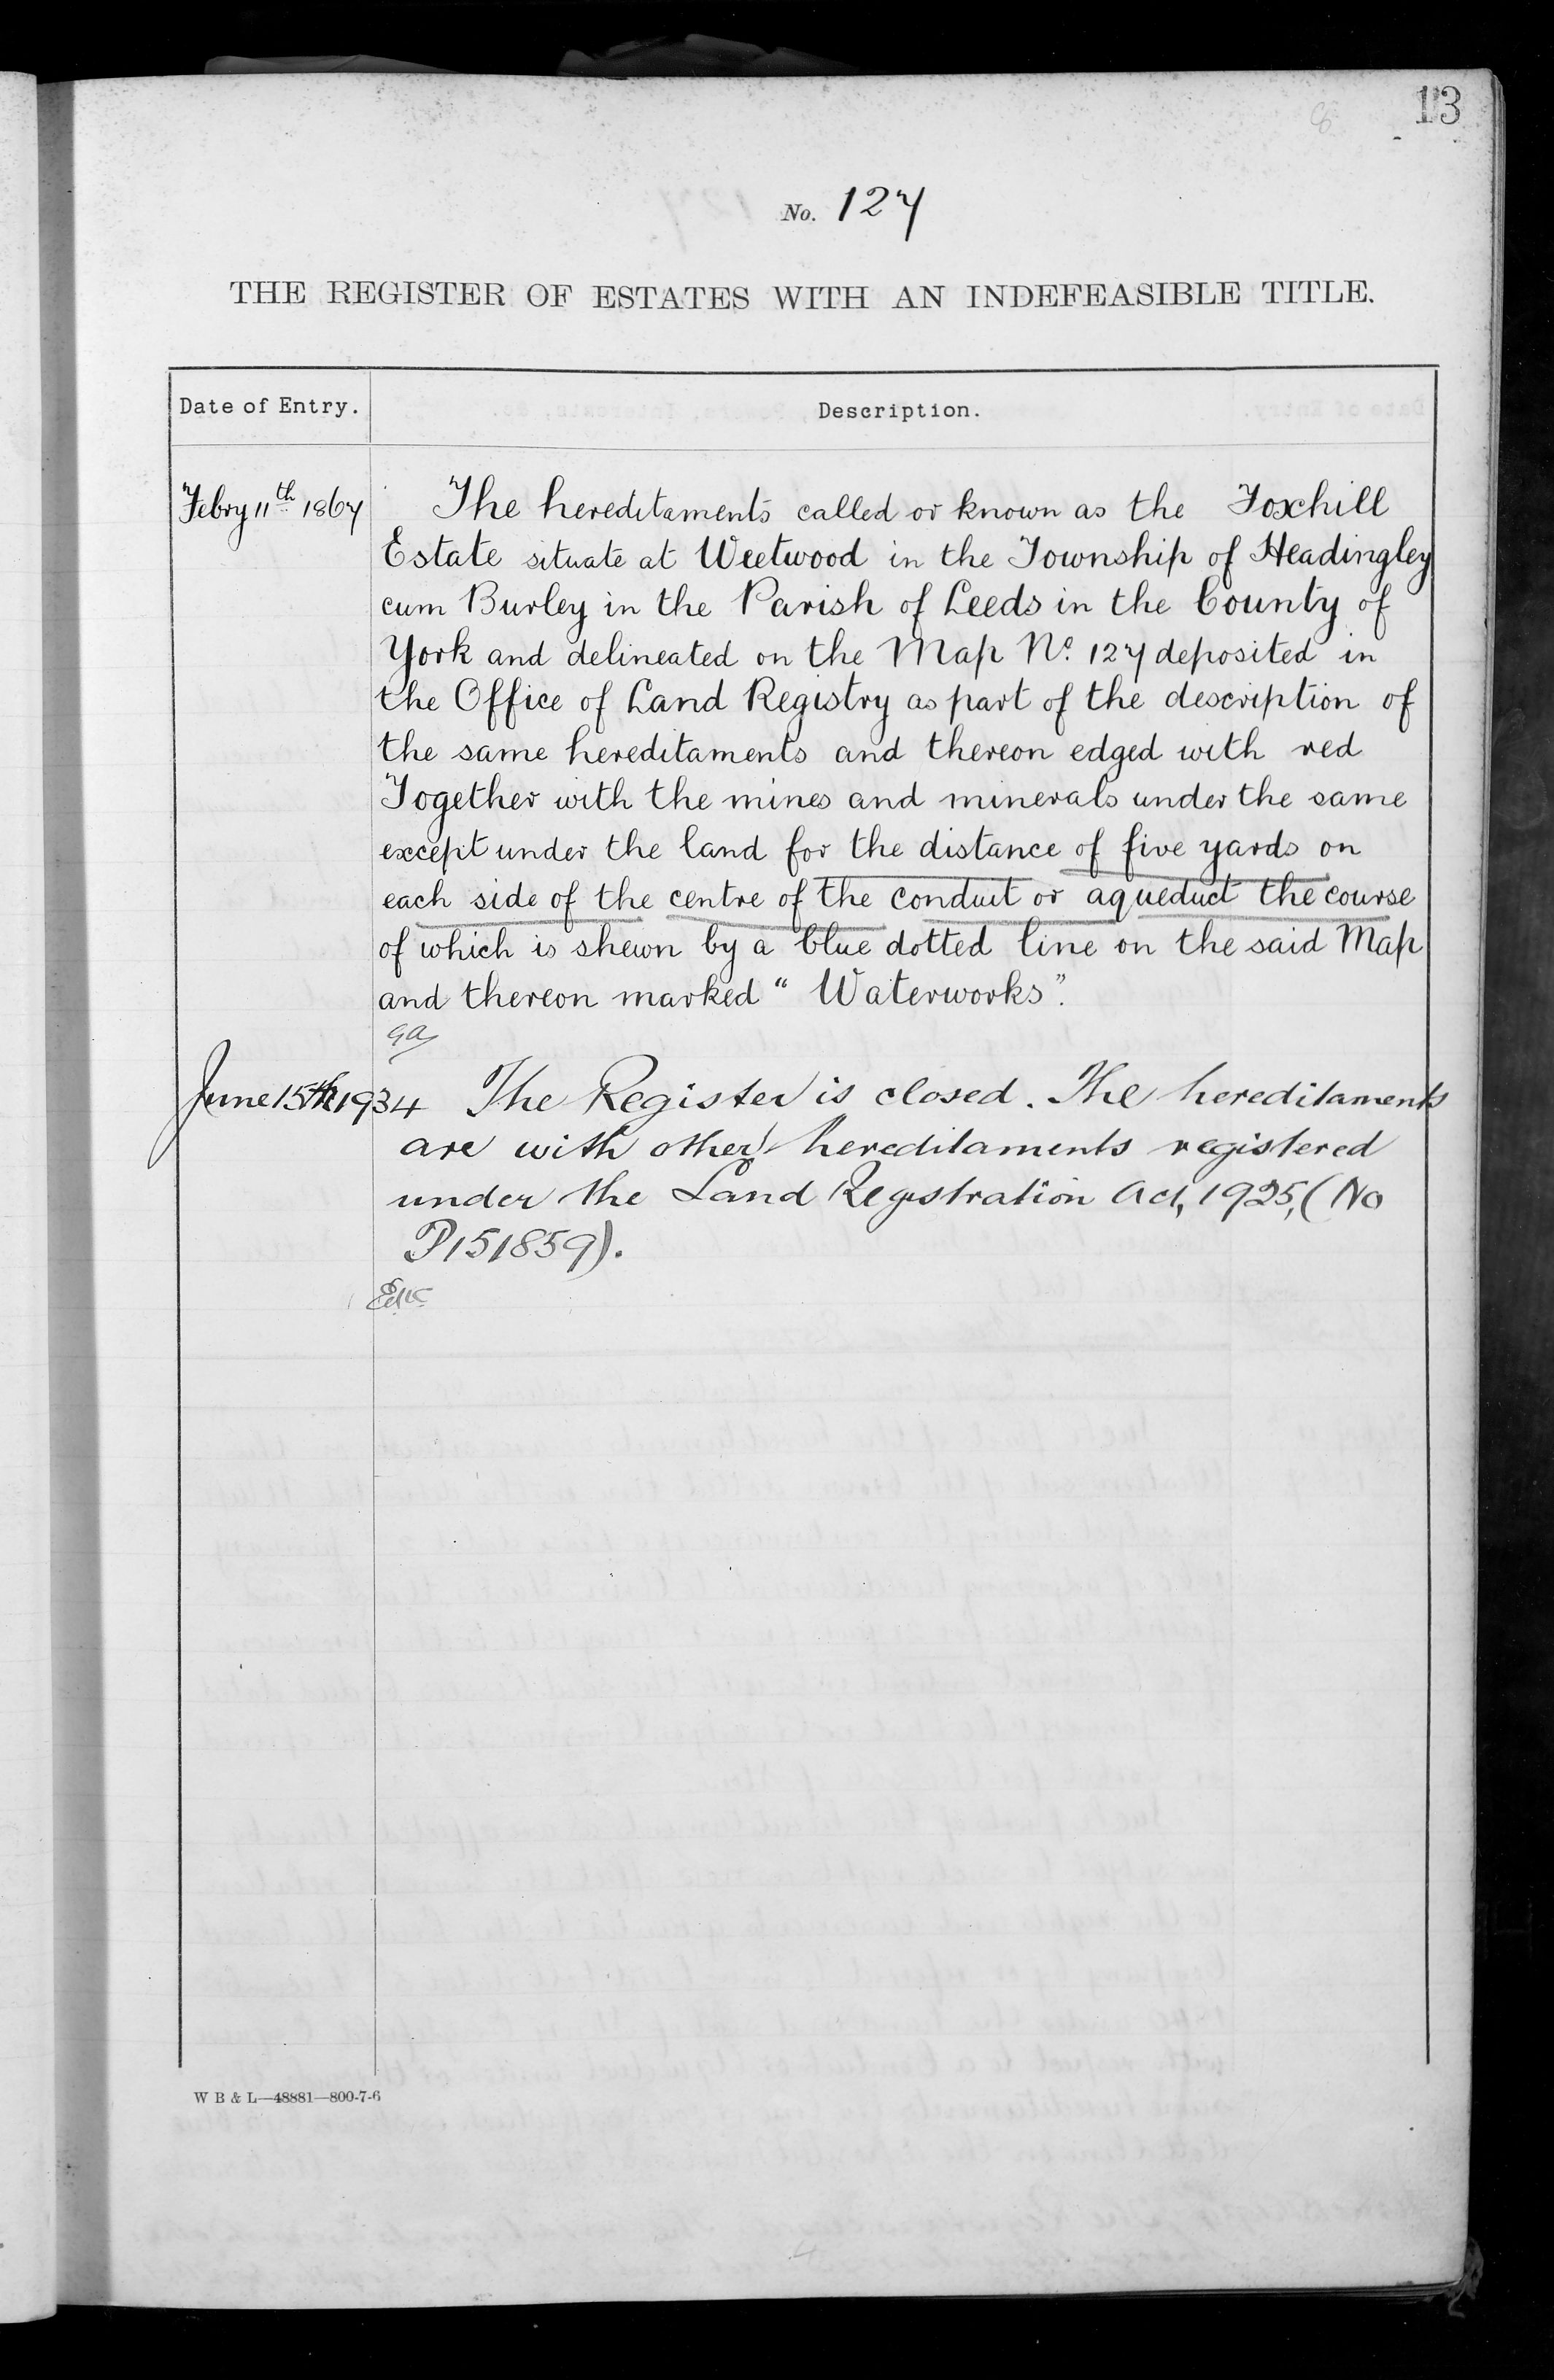 113
No. 127
THE REGISTER OF ESTATES WITH AN INDEFEASIBLE TITLE.
Date of Entry.
Description.
Febry 11th 1867
The hereditaments called or known as the Foxhill
Estate situate at Weetwood in the Township of Headingley
cum Burley in the Parish of Leeds in the County of
York and delineated on the Map No. 127 deposited in
the Office of Land Registry as part of the description of
the same hereditaments and thereon edged with red
Together with the mines and minerals under the same
except under the land for the distance of five yards on
each side of the centre of the conduit or aqueduct the course
of which is shewn by a blue dotted line on the said Map
and thereon marked “Waterworks”.
June 15th 1934 The Register is closed. The hereditaments
are with other hereditaments registered
under the Land Registration Act, 1925, (No
P151859).
W B & L—48881—800-7-6